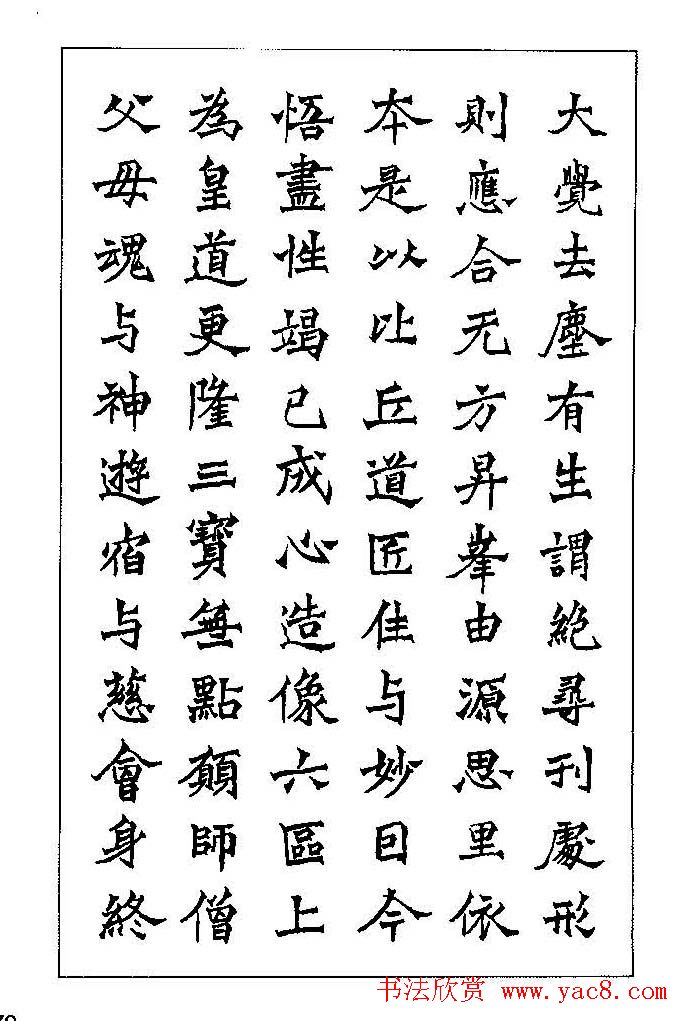 大覺去塵有生謂絶尋刊處形
則應合无方昇峯由源思里依
本是以比丘道匠住与妙因今
悟盡性竭已成心造像六區上
為皇道更隆三寶無點願師僧
父母魂与神遊宿与慈會身終
书法欣赏 www.yac8.com